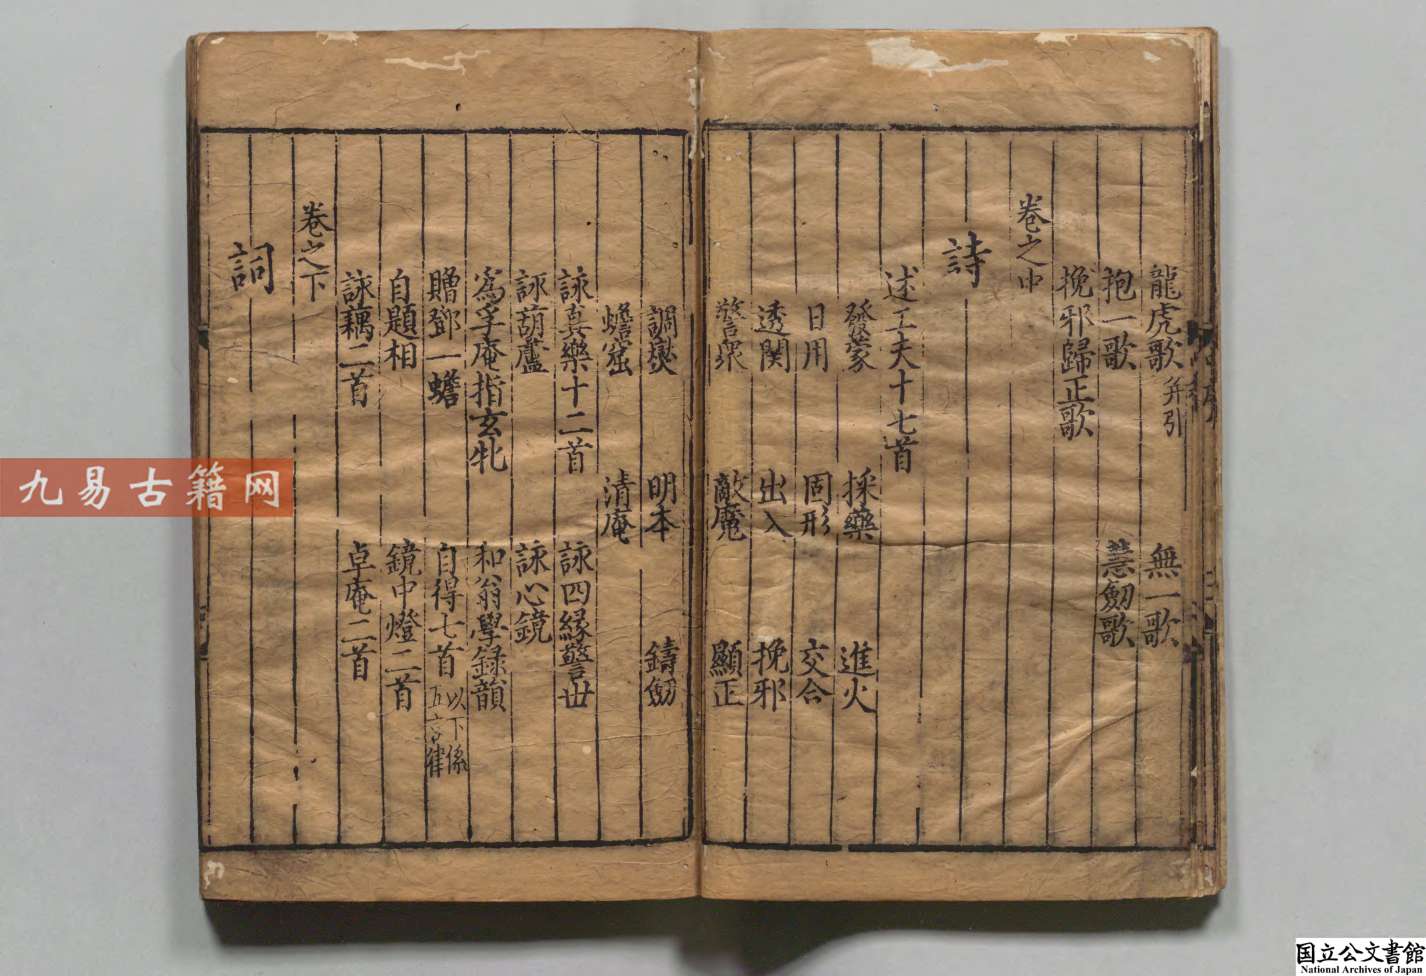 龍虎歌 并引 無一歌
抱一歌 慧劒歌
挽邪歸正歌
卷之中
詩
述工夫十七首
發蒙 採藥 進火
日用 固形 交合
透関 出入 挽邪
警衆 敵魔 顯正
調燮 明本 鑄劒
蟾窟 清庵
詠真樂十二首 詠四緣警世
詠葫蘆 詠心鏡
為孚庵指玄牝 和翁學錄韻
贈鄧一蟾 自得七首 以下係五言律
自題相 鏡中燈二首
詠藕二首 卓庵二首
卷之下
詞
九易古籍网
国立公文書館
National Archives of Japan